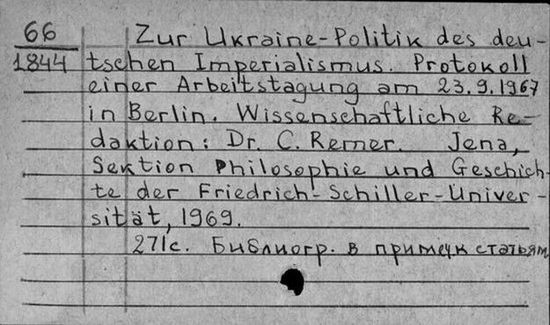 66
1844
Zur Ukraine-Politik des deu-
tschen Imperialismus. Protokoll
einer Arbeitstagung am 23.9.1967
in Berlin. Wissenschaftliche Re-
daktion: Dr. C. Remer. Jena,
Sektion Philosophie und Geschich-
te der Friedrich-Schiller-Univer-
sität, 1969.
271с. Библиогр. в примеч статьям